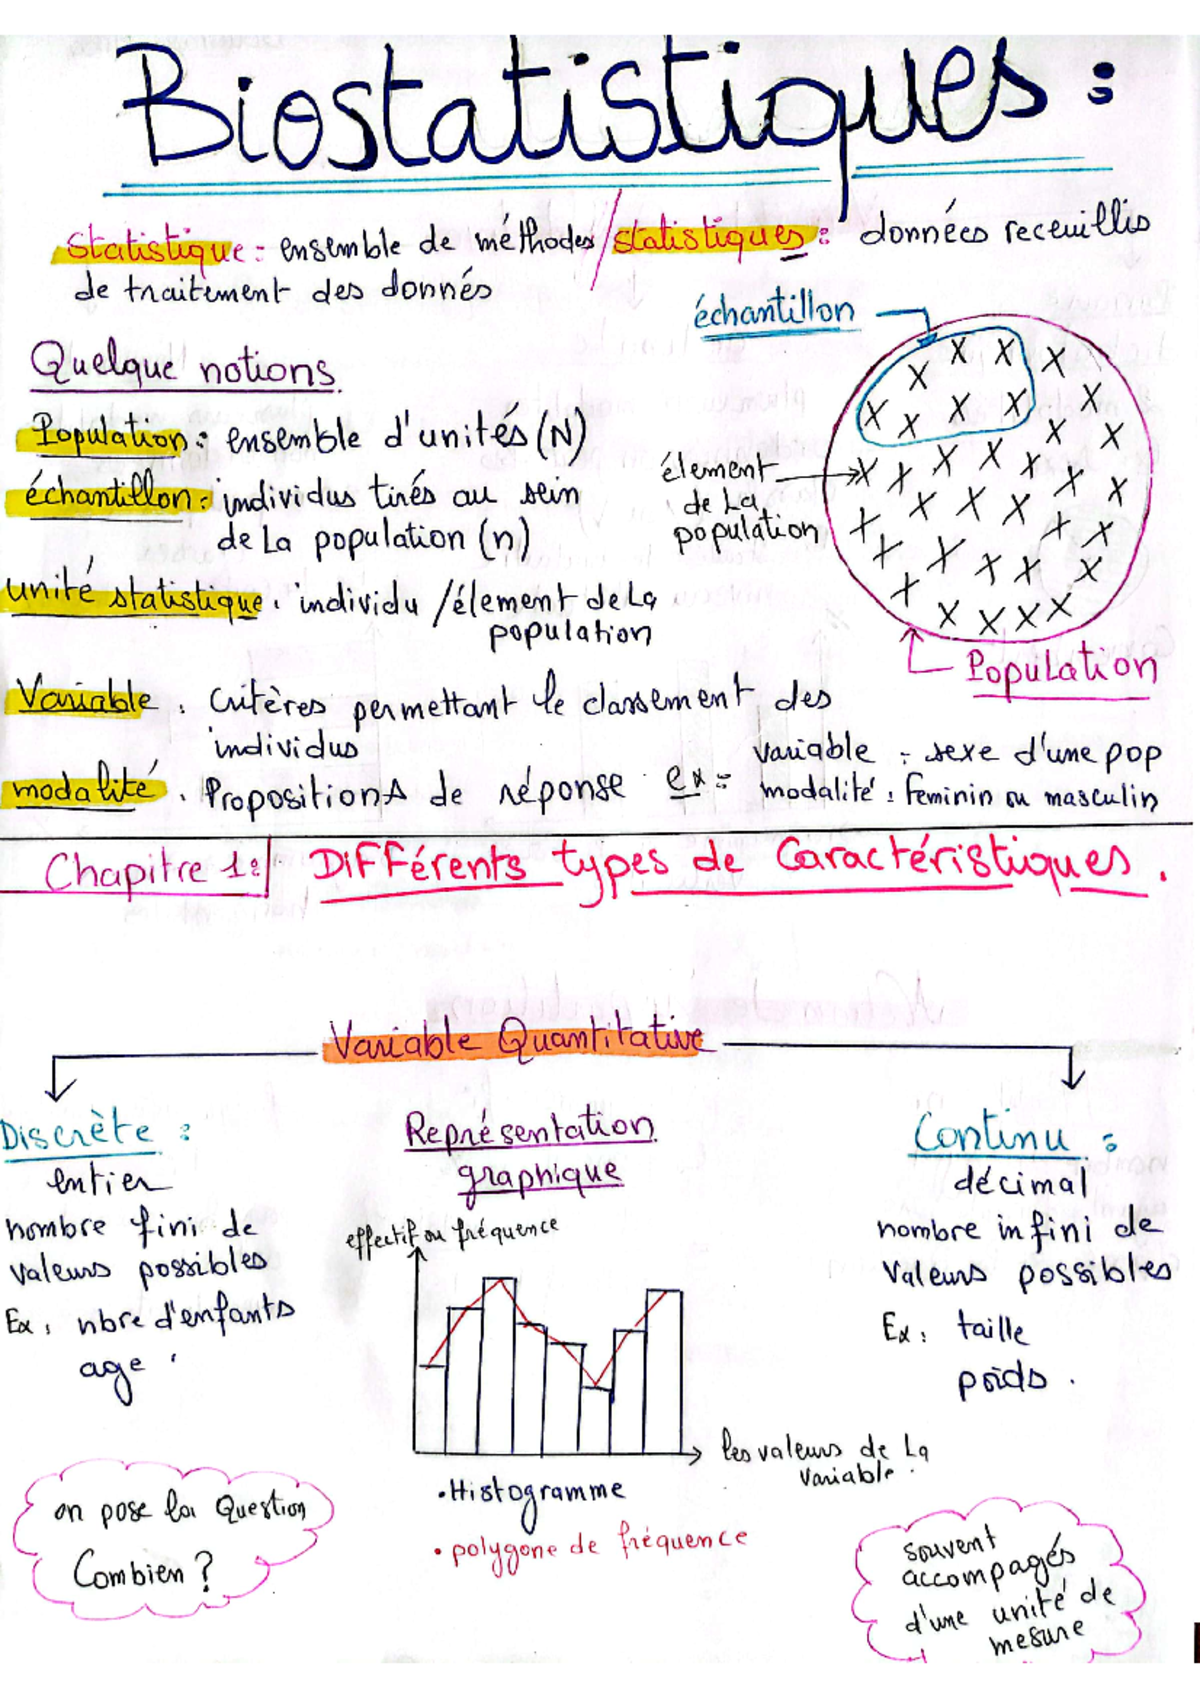 Biostatistiques :
Statistique : ensemble de méthodes / statistiques : données receuillis
de traitement des donnés
échantillon
Quelque notions.
Population : ensemble d'unités (N)
échantillon : individus tirés au sein
de La population (n)
élement
de La
population
unité statistique : individu / élement de La
population
Population
Variable : Critères permettant le classement des
individus
modalité : Propositions de réponse ex :
variable : sexe d'une pop
modalité : feminin ou masculin
Chapitre 1 : Différents types de Caractéristiques.
Variable Quantitative
Discrète :
entier
nombre fini de
valeurs possibles
Ex : nbre d'enfants
age
Représentation
graphique
effectif ou fréquence
les valeurs de La
variable.
• Histogramme
• polygone de fréquence
Continu :
décimal
nombre infini de
Valeurs possibles
Ex : taille
poids.
on pose la Question
Combien ?
souvent
accompagés
d'une unité de
mesure